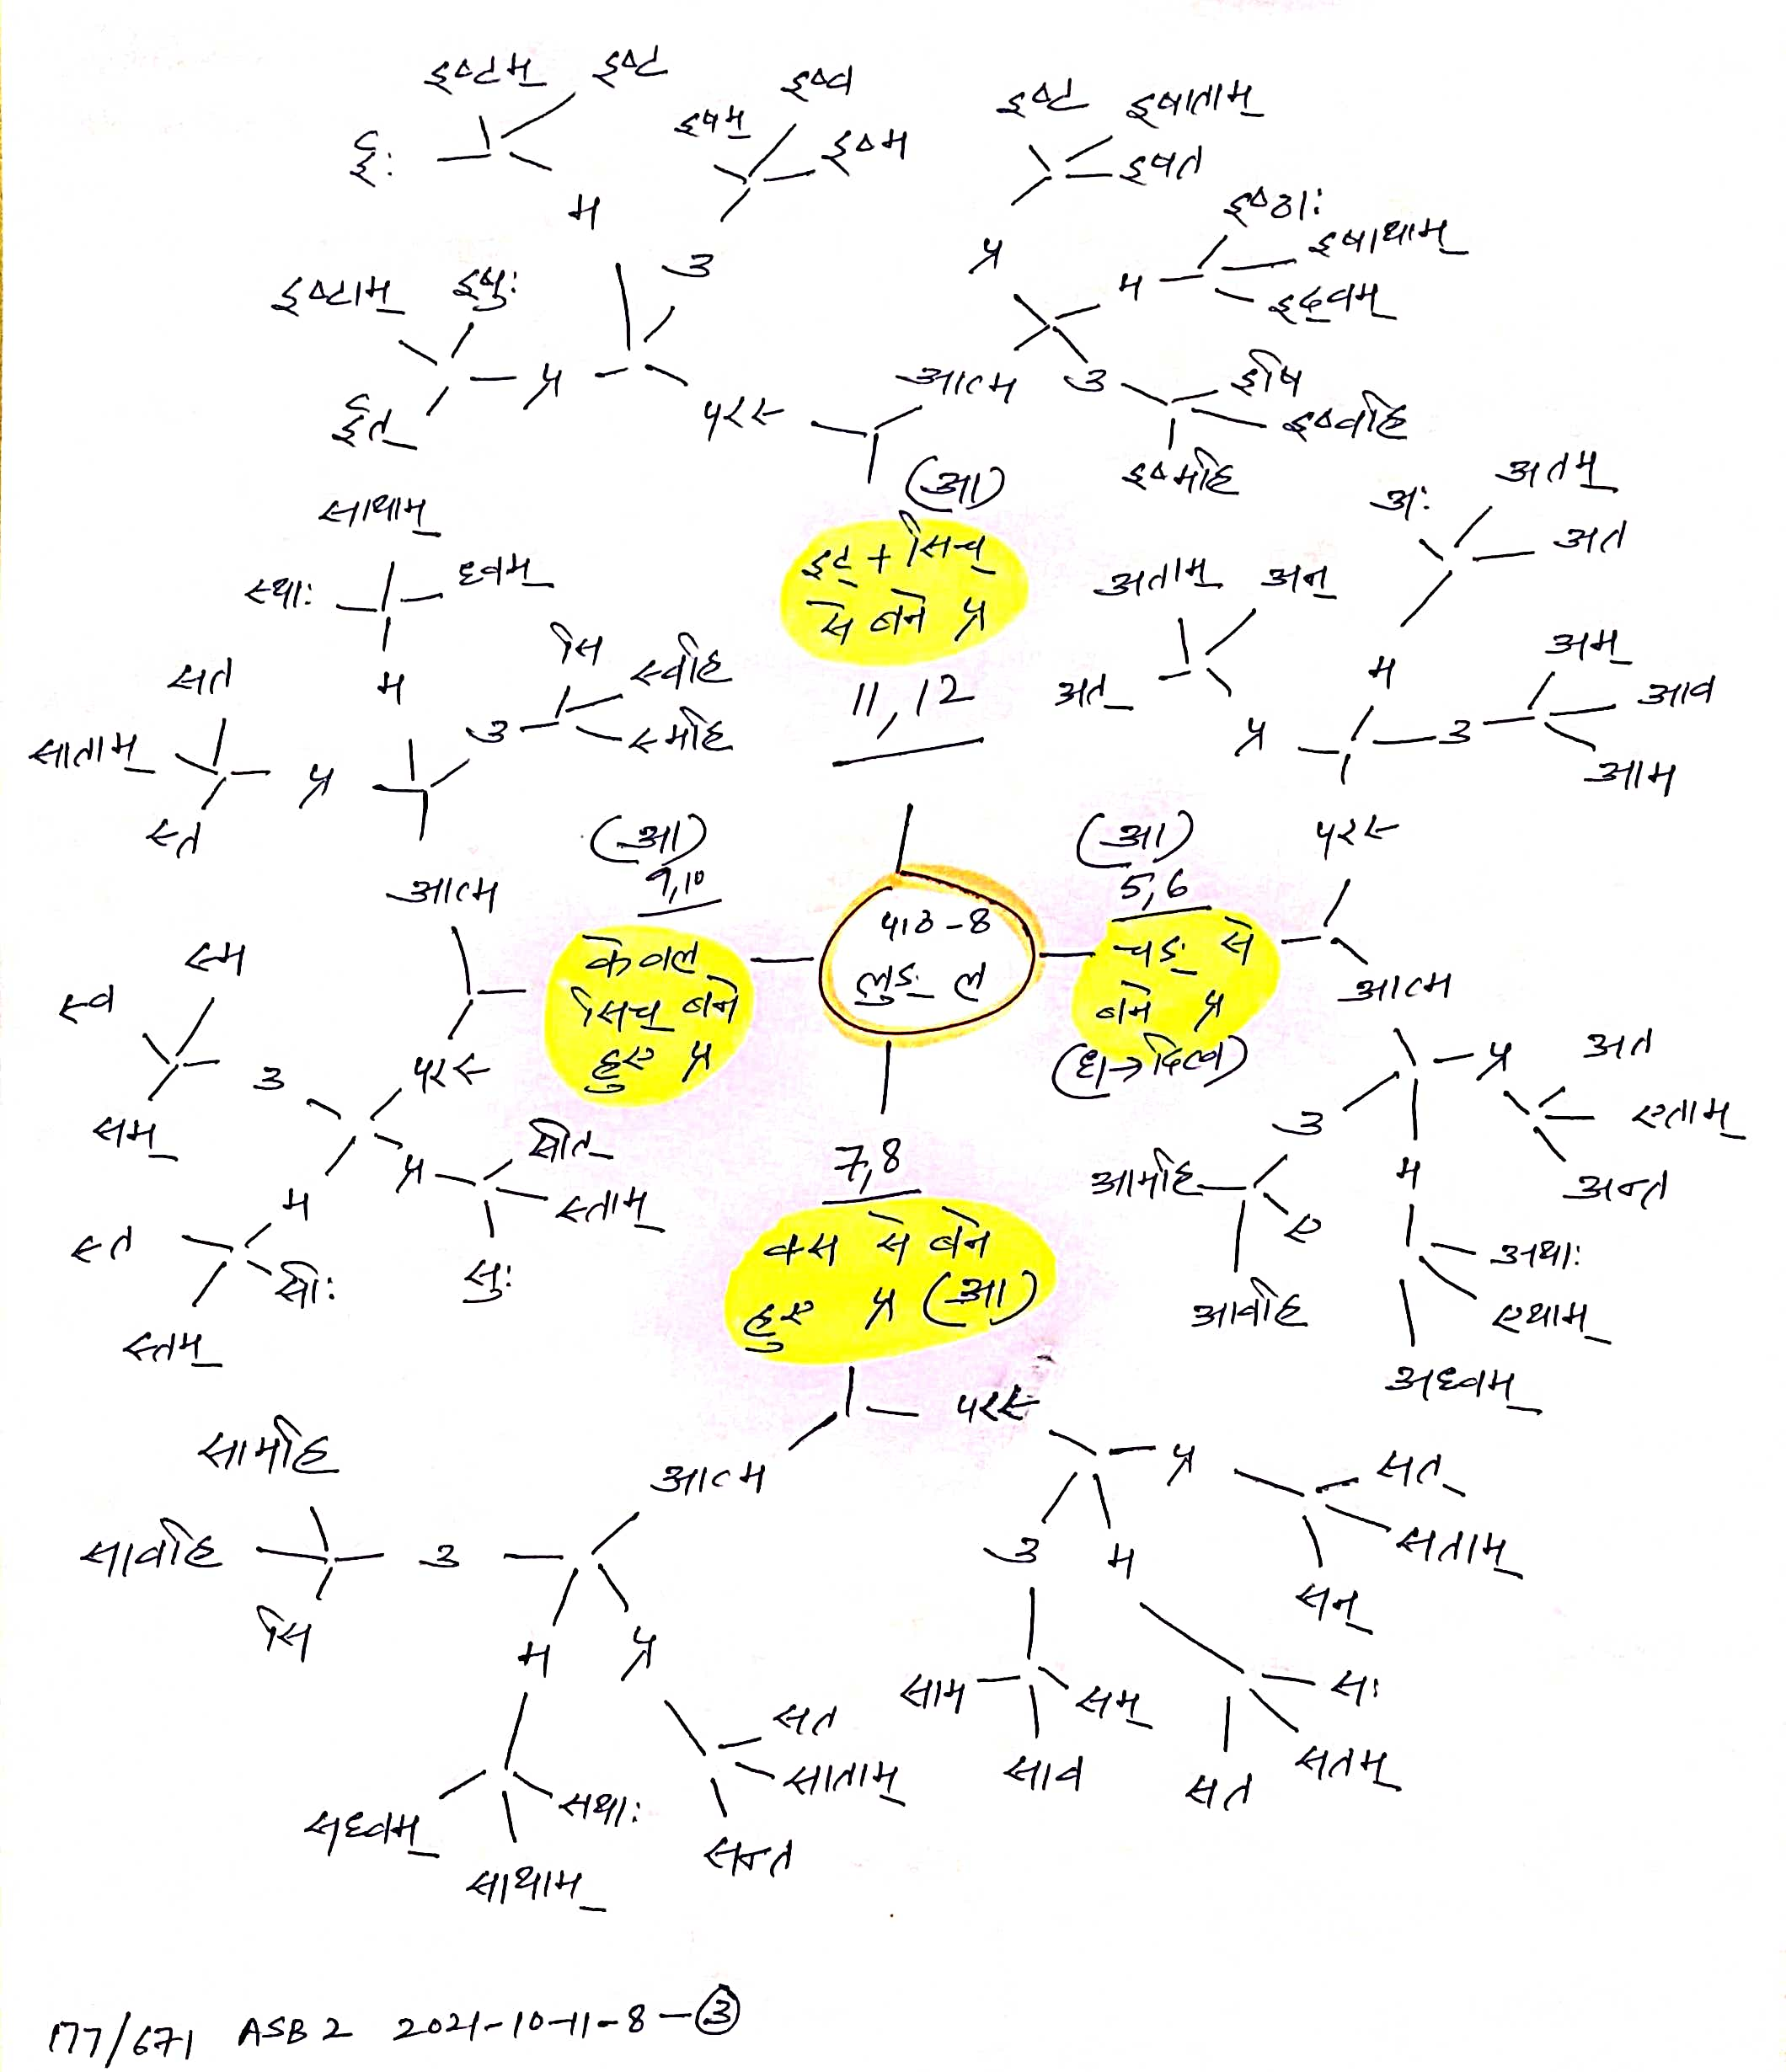 इष्टम् इष्ट
ईः
म
इषम् इष्व
इष्म
उ
इष्टाम् इषुः
ईत्
प्र
परस्
इष्ट इषाताम्
इषत
प्र
इष्ठाः
म इषाथाम्
इढ्वम्
आत्म उ इषि
इष्वहि
इष्महि
(आ)
इट् + सिच्
से बने प्र
11, 12
साथाम्
स्थाः ध्वम्
म
सत
साताम्
स्त
प्र
उ सि
स्वहि
स्महि
आत्म
(आ)
9,10
केवल
सिच् बने
हुए प्र
परस्
स्म
स्व
सम्
उ
प्र सीत्
स्ताम्
सुः
म
स्त
सीः
स्तम्
पाठ-8
लुङ् ल
अः अतम्
अत
म
अताम् अन्
अत्
प्र
उ अम्
आव
आम
परस्
(आ)
5,6
चङ् से
बने प्र
(धा→द्वित्व)
आत्म
प्र अत
एताम्
अन्त
उ
आमहि
ए
आवहि
म
अथाः
एथाम्
अध्वम्
7,8
क्स से बने
हुए प्र (आ)
परस्
प्र सत्
सताम्
सन्
उ म
साम सम्
साव
सः
सतम्
सत
आत्म
सामहि
सावहि उ
सि
म प्र
सत
साताम्
सन्त
सथाः
सध्वम्
साथाम्
177/671 ASB 2 2021-10-11-8-③